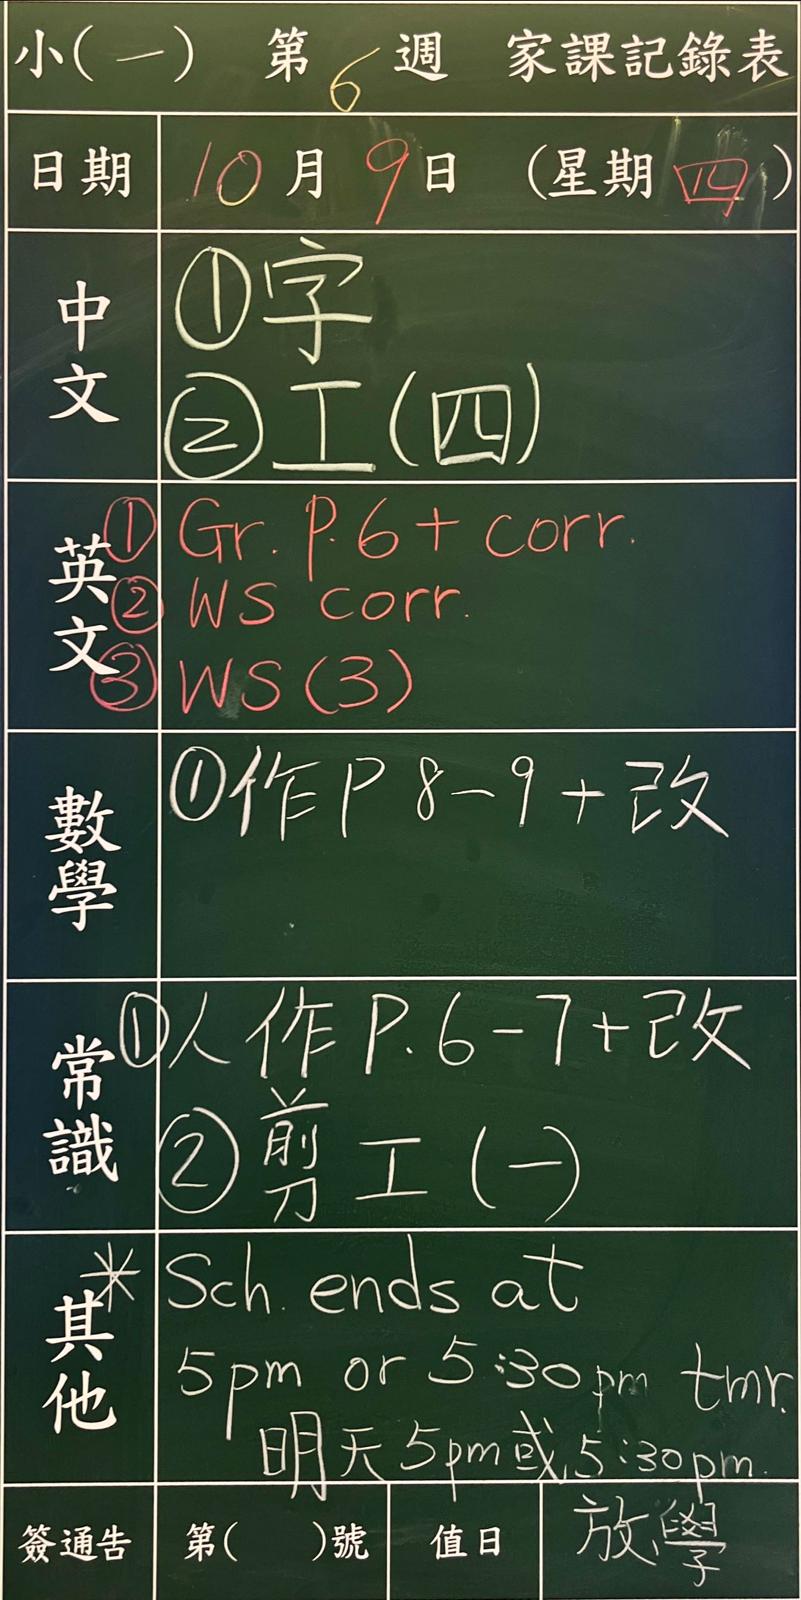 小(一) 第6週 家課記錄表
日期 10月9日 (星期四)
中文
①字
②工(四)
英文
①Gr. P.6+ corr.
②WS corr.
③WS(3)
數學
①作P 8-9+改
常識
①人作P.6-7+改
②剪工(一)
其他
*Sch. ends at
5pm or 5:30pm tmr.
明天5pm或5:30pm.
放學
簽通告 第( )號 值日